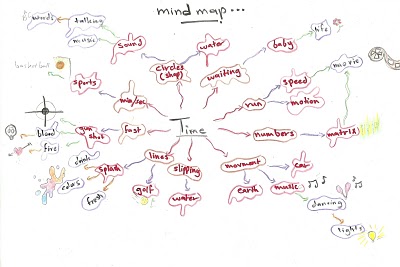 mind map...
words
talking
music
sound
water
baby
life
circles
(shap)
waiting
movie
basketball
sports
speed
min/sec
run
motion
Time
blood
gun
shot
fast
numbers
matrix
fire
lines
slipping
movment
car
splash
drink
golf
water
earth
music
fresh
dancing
lights